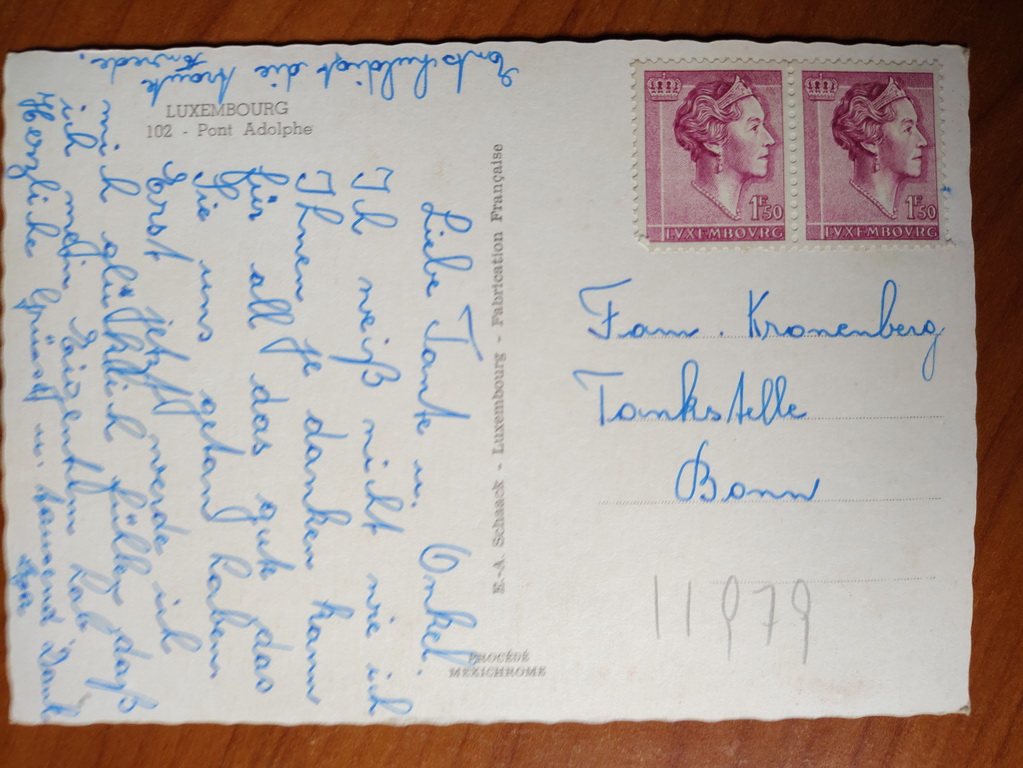 LUXEMBOURG
102 - Pont Adolphe
Liebe Tante u. Onkel.
Ich weiß nicht wie ich
Ihnen je danken kann
für all das gute das
Sie uns getan haben
Erst jetzt werde ich
mich glücklich fühlen daß
ich mein Eaigentum hab
Herzliche Grüße u. tausend Dank
Entschuldigt die
Anrede.
E.-A. Schaack - Luxembourg - Fabrication Française
PROCÉDÉ
MEXICHROME
1F50
LVXEMBOVRG
1F50
LVXEMBOVRG
Fam. Kronenberg
Tankstelle
Bonn
11979